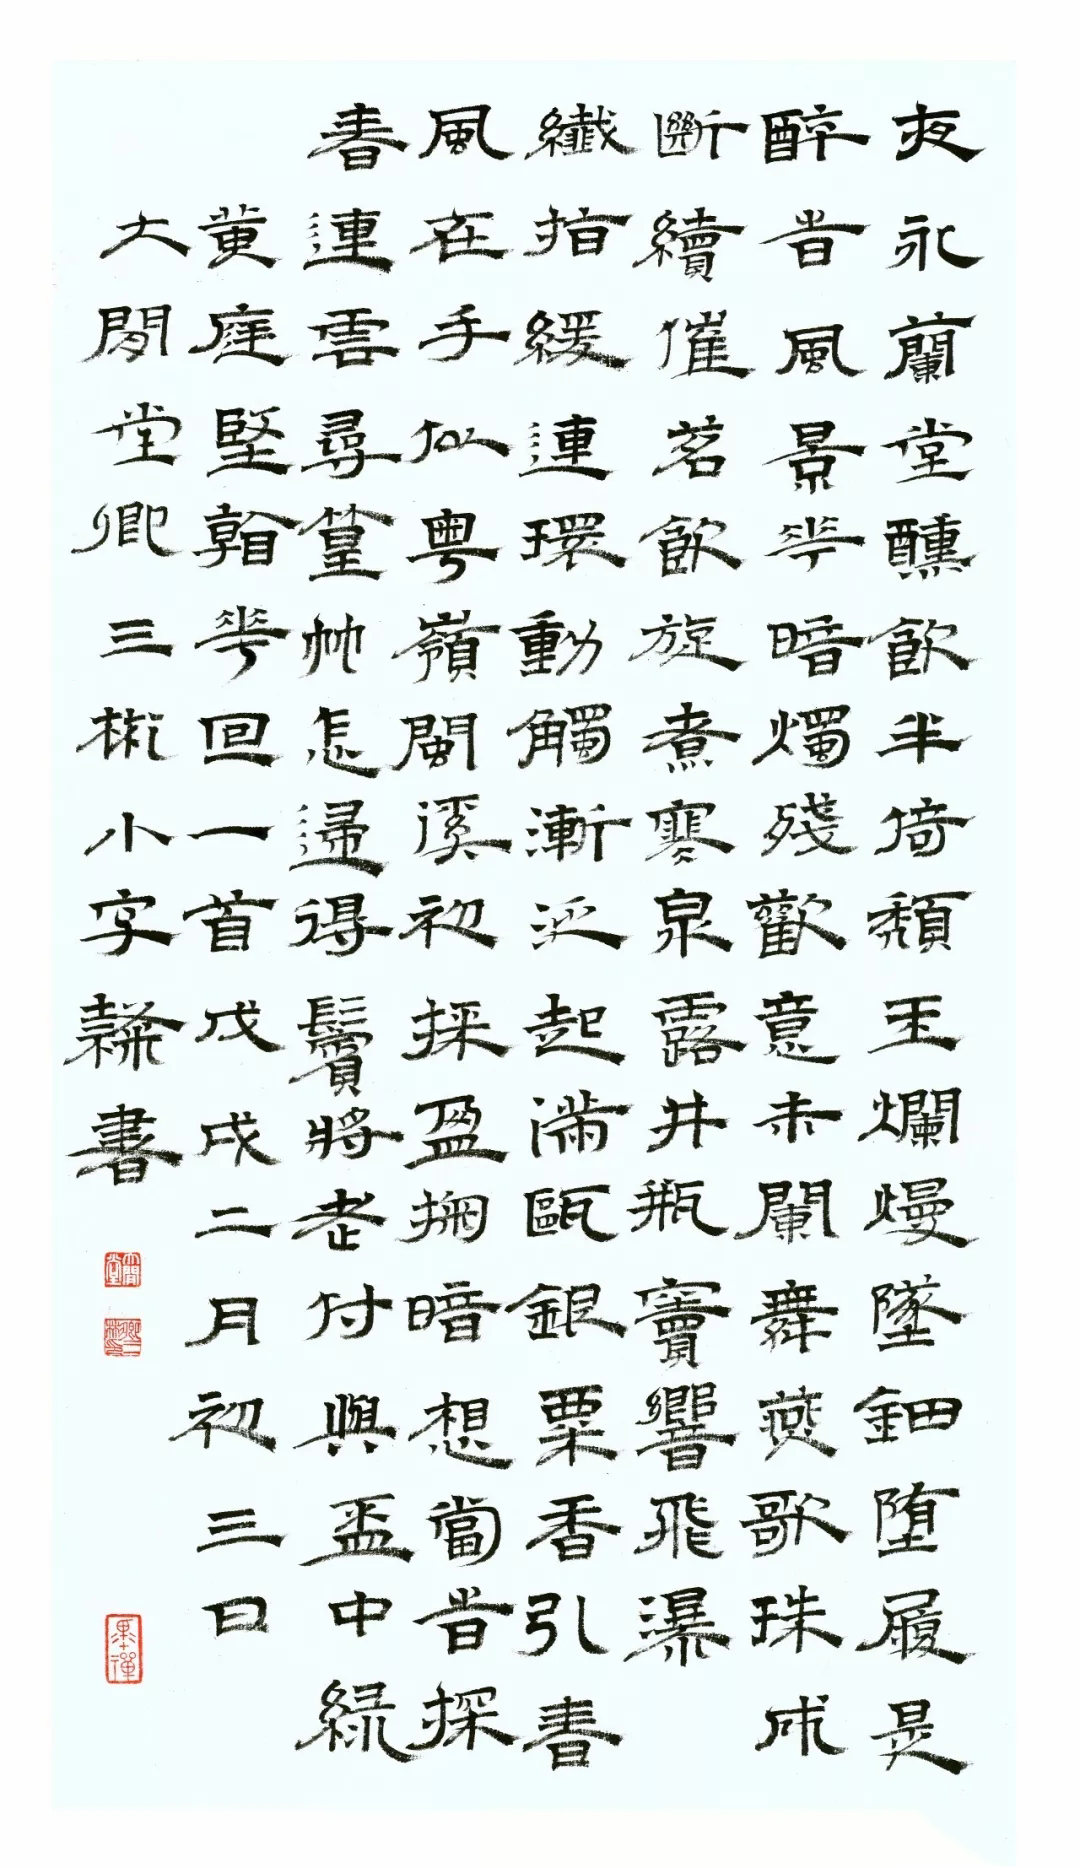 夜永蘭堂醺飲半倚頹玉爛熳墜鈿堕履是
醉旹風景花暗燭殘歡意未闌舞燕歌珠成
斷續催茗飲旋煮寒泉露井瓶竇響飛瀑
纖指緩連環動觸漸泛起滿甌銀粟香引春
風在手似粤嶺閩溪初採盈掬暗想當旹探
春連雲尋篁竹怎歸得鬢將老付與盃中緑
黄庭堅看花回一首戊戌二月初三日
大閒堂卿三彬小字隸書
大閒堂